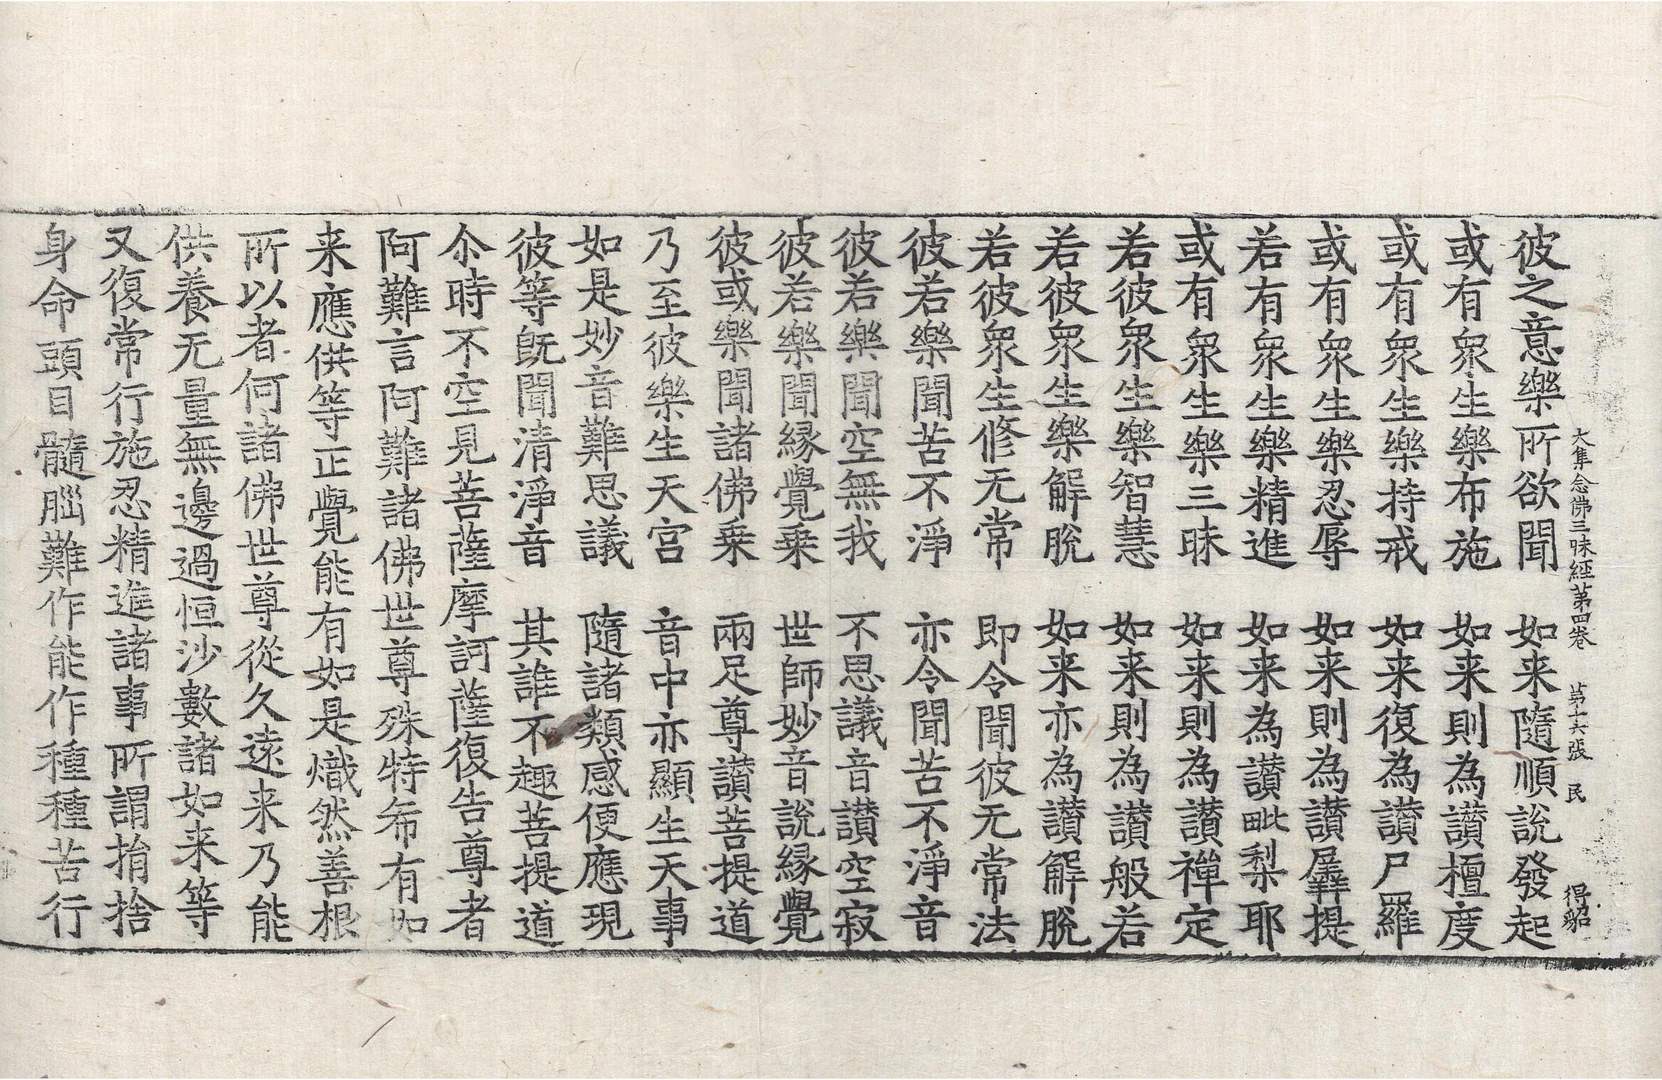 大集念佛三昧經第四卷 第十六張 民 得貂
彼之意樂所欲聞 如来隨順說發起
或有衆生樂布施 如来則為讃檀度
或有衆生樂持戒 如来復為讃尸羅
或有衆生樂忍辱 如来則為讃羼提
若有衆生樂精進 如来為讃毗梨耶
或有衆生樂三昧 如来則為讃禪定
若彼衆生樂智慧 如来則為讃般若
若彼衆生樂解脫 如来亦為讃解脫
若彼衆生修无常 即令聞彼无常法
彼若樂聞苦不淨 亦令聞苦不淨音
彼若樂聞空無我 不思議音讃空寂
彼若樂聞縁覺乗 世師妙音說縁覺
彼或樂聞諸佛乗 兩足尊讃菩提道
乃至彼樂生天宫 音中亦顯生天事
如是妙音難思議 隨諸類感便應現
彼等旣聞清淨音 其誰不趣菩提道
尒時不空見菩薩摩訶薩復告尊者
阿難言阿難諸佛世尊殊特希有如
来應供等正覺能有如是熾然善根
所以者何諸佛世尊從久遠来乃能
供養无量無邊過恒沙數諸如来等
又復常行施忍精進諸事所謂捎捨
身命頭目髓𦛁難作能作種種苦行